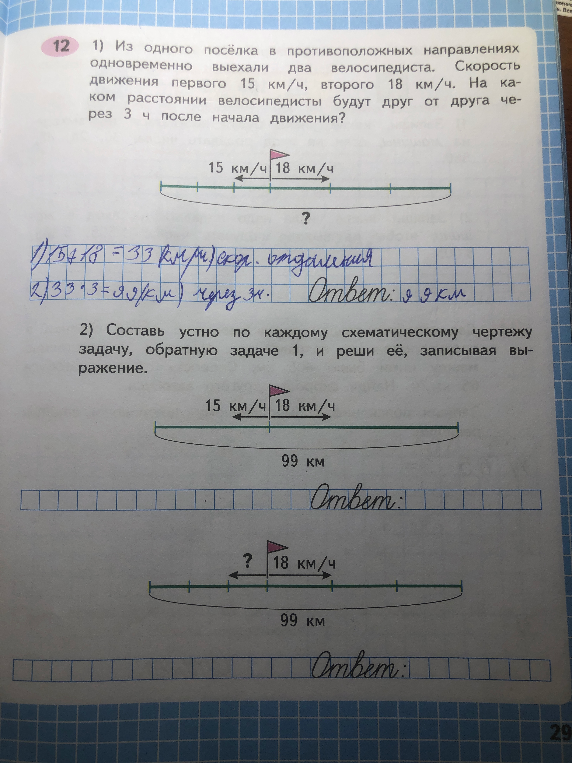 12 1) Из одного посёлка в противоположных направлениях
одновременно выехали два велосипедиста. Скорость
движения первого 15 км/ч, второго 18 км/ч. На ка-
ком расстоянии велосипедисты будут друг от друга че-
рез 3 ч после начала движения?
15 км/ч 18 км/ч
?
1) 15+18 = 33 (км/ч) скор. отдаления
2) 33·3=99(км) через 3ч. Ответ: 99 км
2) Составь устно по каждому схематическому чертежу
задачу, обратную задаче 1, и реши её, записывая вы-
ражение.
15 км/ч 18 км/ч
99 км
Ответ:
? 18 км/ч
99 км
Ответ:
29